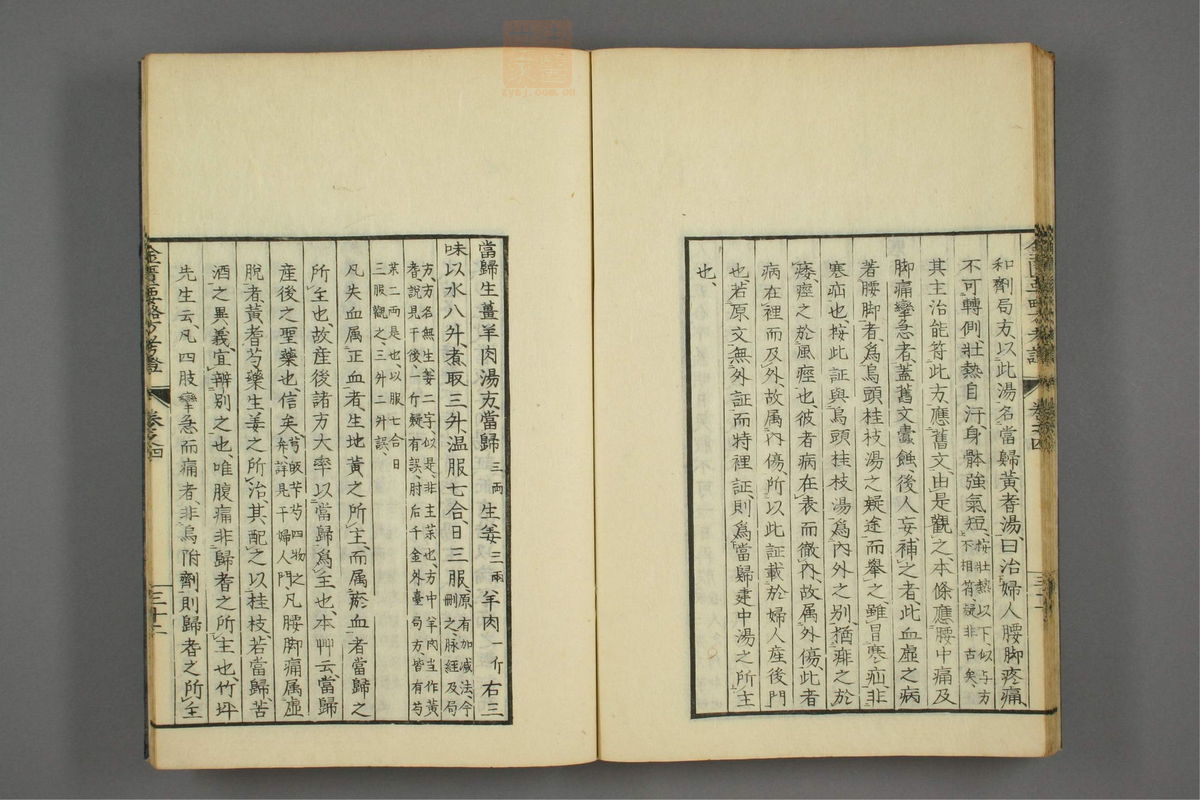 和劑局方、以此湯名當歸黃耆湯、曰治婦人腰脚疼痛
不可轉側、壯熱自汗、身體強氣短、按壯熱以下、似与方
不相符、疑非古矣、
其主治能符此方、應舊文、由是觀之、本條應腰中痛及
脚痛攣急者、蓋舊文蠹蝕、後人妄補之者、此血虛之病
著腰脚者、為烏頭桂枝湯之疑途而舉之、雖冒寒疝非
寒疝也、按此証與烏頭桂枝湯為內外之別、猶痱之於
痿、痙之於風痙也、彼者病在表而徹內、故属外傷、此者
病在裡而及外、故属內傷、所以此証載於婦人產後門
也、若原文無外証而特裡証、則為當歸建中湯之所主
也、
當歸生薑羊肉湯方、當歸三两、生姜三兩羊肉一斤右三
味以水八升、煮取三升、温服七合、日三服、原有加减法、今
刪之、脉經及局
方、方名無生姜二字、似是、非主藥也、方中羊肉當作黃
耆、說見于後、一斤疑有誤、肘后千金外臺局方、皆有芍
藥二两是也、以服七合日
三服觀之、三升二升誤、
凡失血属正血者、生地黃之所主、而属瘀血者當歸之
所主也、故產後諸方大率以當歸為主也、本艸云、當歸
產後之聖藥也、信矣、芎歸芐芍四物之
弁、詳見于婦人門凡腰脚痛属虛
脫者、黃耆芍藥生姜之所治、其配之以桂枝、若當歸、苦
酒之異義、宜辨別之也、唯腹痛非歸耆之所主也、竹坪
先生云、凡四肢攣急而痛者、非烏附劑、則歸耆之所主
金匱要略方考證
卷之四
三十二